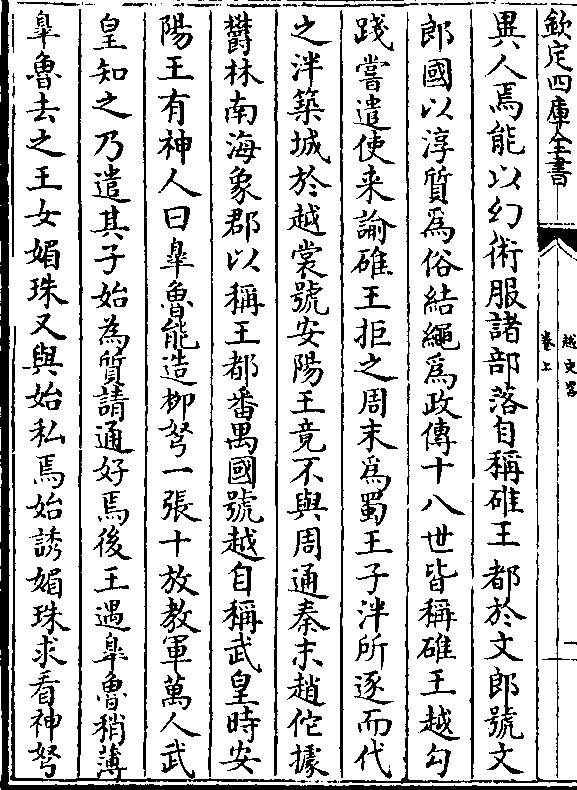 欽定四庫全書
越史畧
卷上
一
異人焉能以幻術服諸部落自稱碓王都於文郎號文
郎國以淳質爲俗結繩爲政傳十八世皆稱碓王越勾
踐嘗遣使来諭碓王拒之周末爲蜀王子泮所逐而代
之泮築城於越裳號安陽王竟不與周通秦末趙佗據
欝林南海象郡以稱王都番禺國號越自稱武皇時安
陽王有神人曰臯魯能造柳弩一張十放教軍萬人武
皇知之乃遣其子始為質請通好焉後王遇臯魯稍薄
臯魯去之王女媚珠又與始私焉始誘媚珠求看神弩